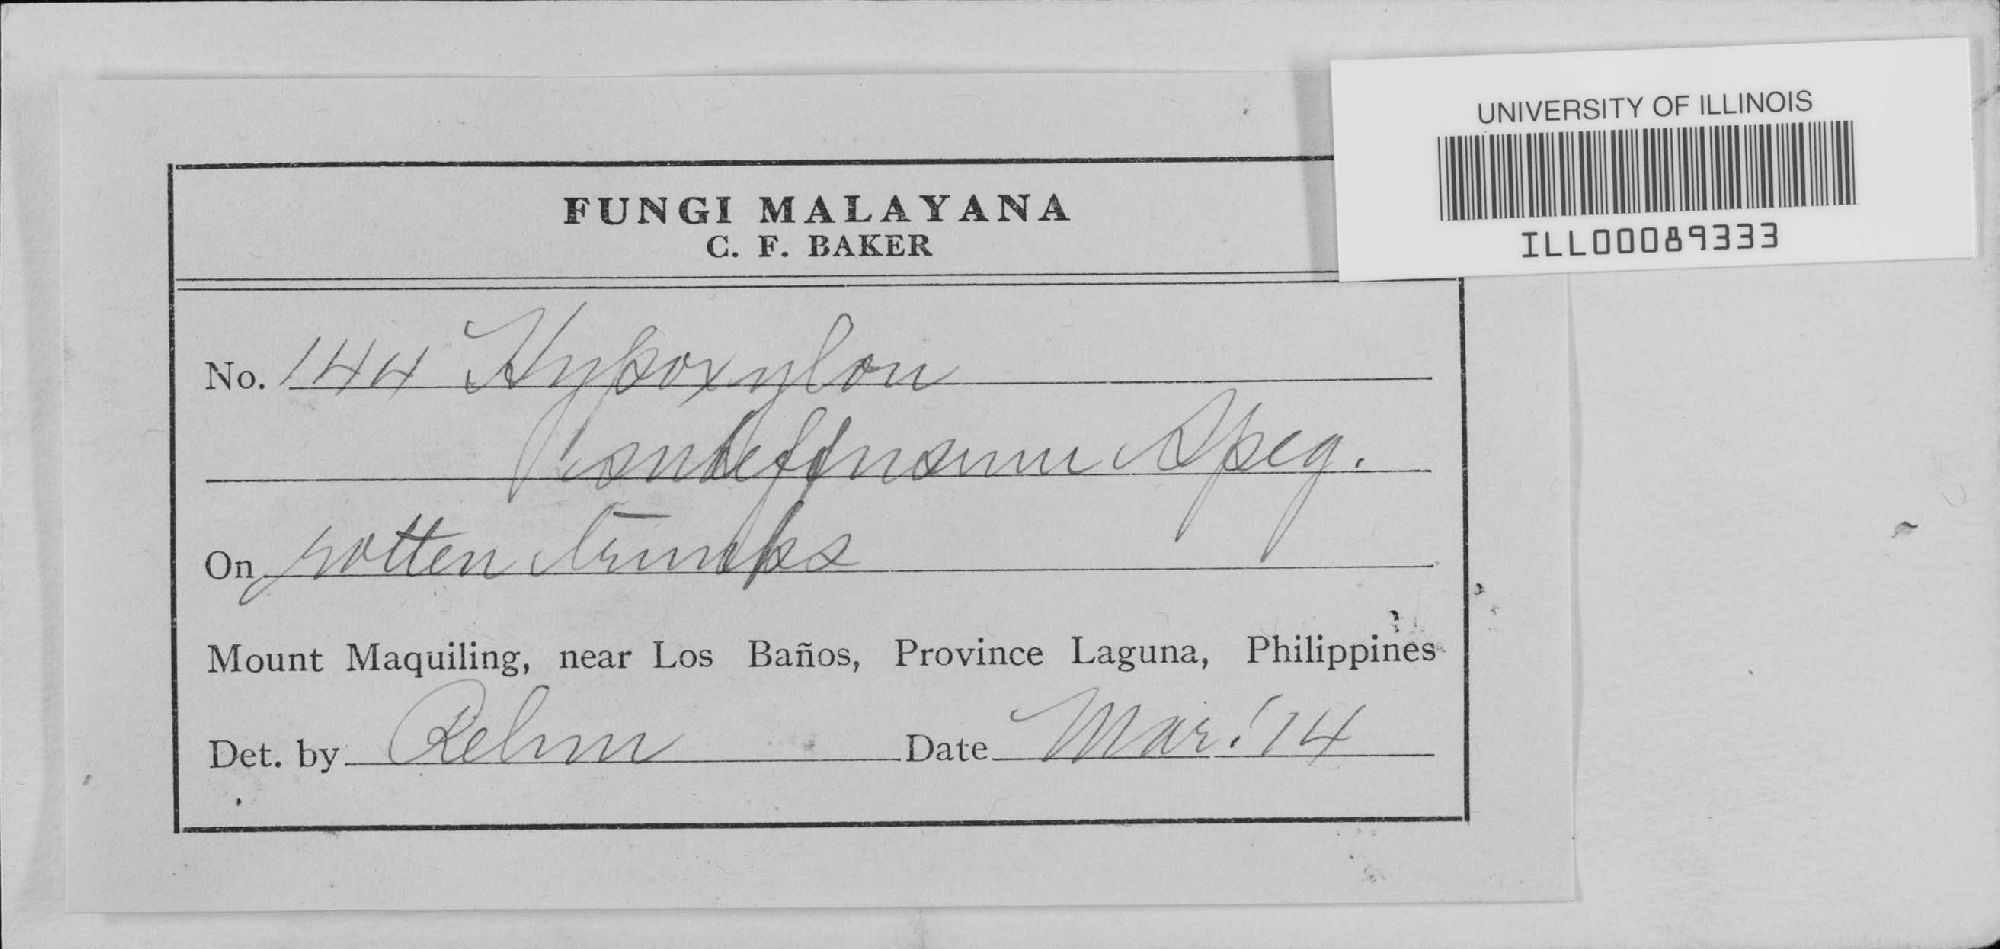 UNIVERSITY OF ILLINOIS
ILL00089333
FUNGI MALAYANA
C. F. BAKER
No. 144 Hypoxylon
subeffusum Speg.
On rotten trunks
Mount Maquiling, near Los Baños, Province Laguna, Philippines
Det. by Rehm Date Mar. '14